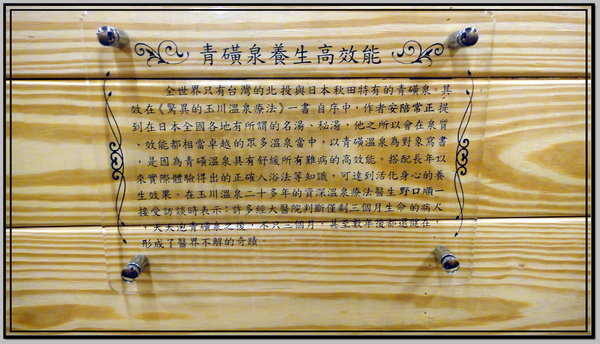 青磺泉養生高效能
全世界只有台灣的北投與日本秋田特有的青磺泉。其
效在《驚異的玉川溫泉療法》一書自序中，作者安陪常正提
到在日本全國各地有所謂的名湯、秘湯，他之所以會在泉質
、效能都相當卓越的眾多溫泉當中，以青磺溫泉為對象寫書
，是因為青磺溫泉具有舒緩所有難病的高效能。搭配長年以
來實際體驗得出的正確入浴法等知識，可達到活化身心的養
生效果。在玉川溫泉二十多年的資深溫泉療法醫生野口順一
接受訪談時表示：許多經大醫院判斷僅剩三個月生命的病人
，天天泡青磺泉之後，不只三個月，甚至數年後都還健在，
形成了醫界不解的奇蹟